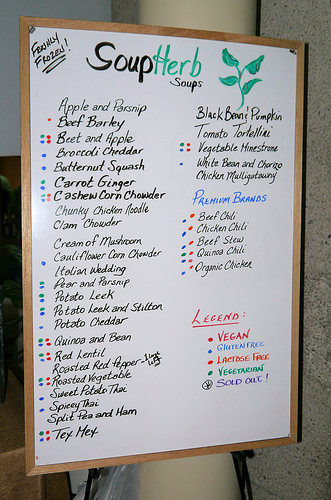 FRESHLY
FROZEN!
SoupHerb
Soups
Apple and Parsnip
Beef Barley
Beet and Apple
Broccoli Cheddar
Butternut Squash
Carrot Ginger
Cashew Corn Chowder
Chunky Chicken Noodle
Clam Chowder
Cream of Mushroom
Cauliflower Corn Chowder
Italian Wedding
Pear and Parsnip
Potato Leek
Potato Leek and Stilton
Potato Cheddar
Quinoa and Bean
Red Lentil
Roasted Red Pepper -
Roasted Vegetable
Sweet Potato Thai
Spicey Thai
Split Pea and Ham
Tex Mex
Black Bean & Pumpkin
Tomato Tortellini
Vegetable Minestrone
White Bean and Chorizo
Chicken Mulligatawny
PREMIUM BRANDS
Beef Chili
Chicken Chili
Beef Stew
Quinoa Chili
Organic Chicken
LEGEND:
VEGAN
GLUTEN FREE
LACTOSE FREE
VEGETARIAN
SOLD OUT!